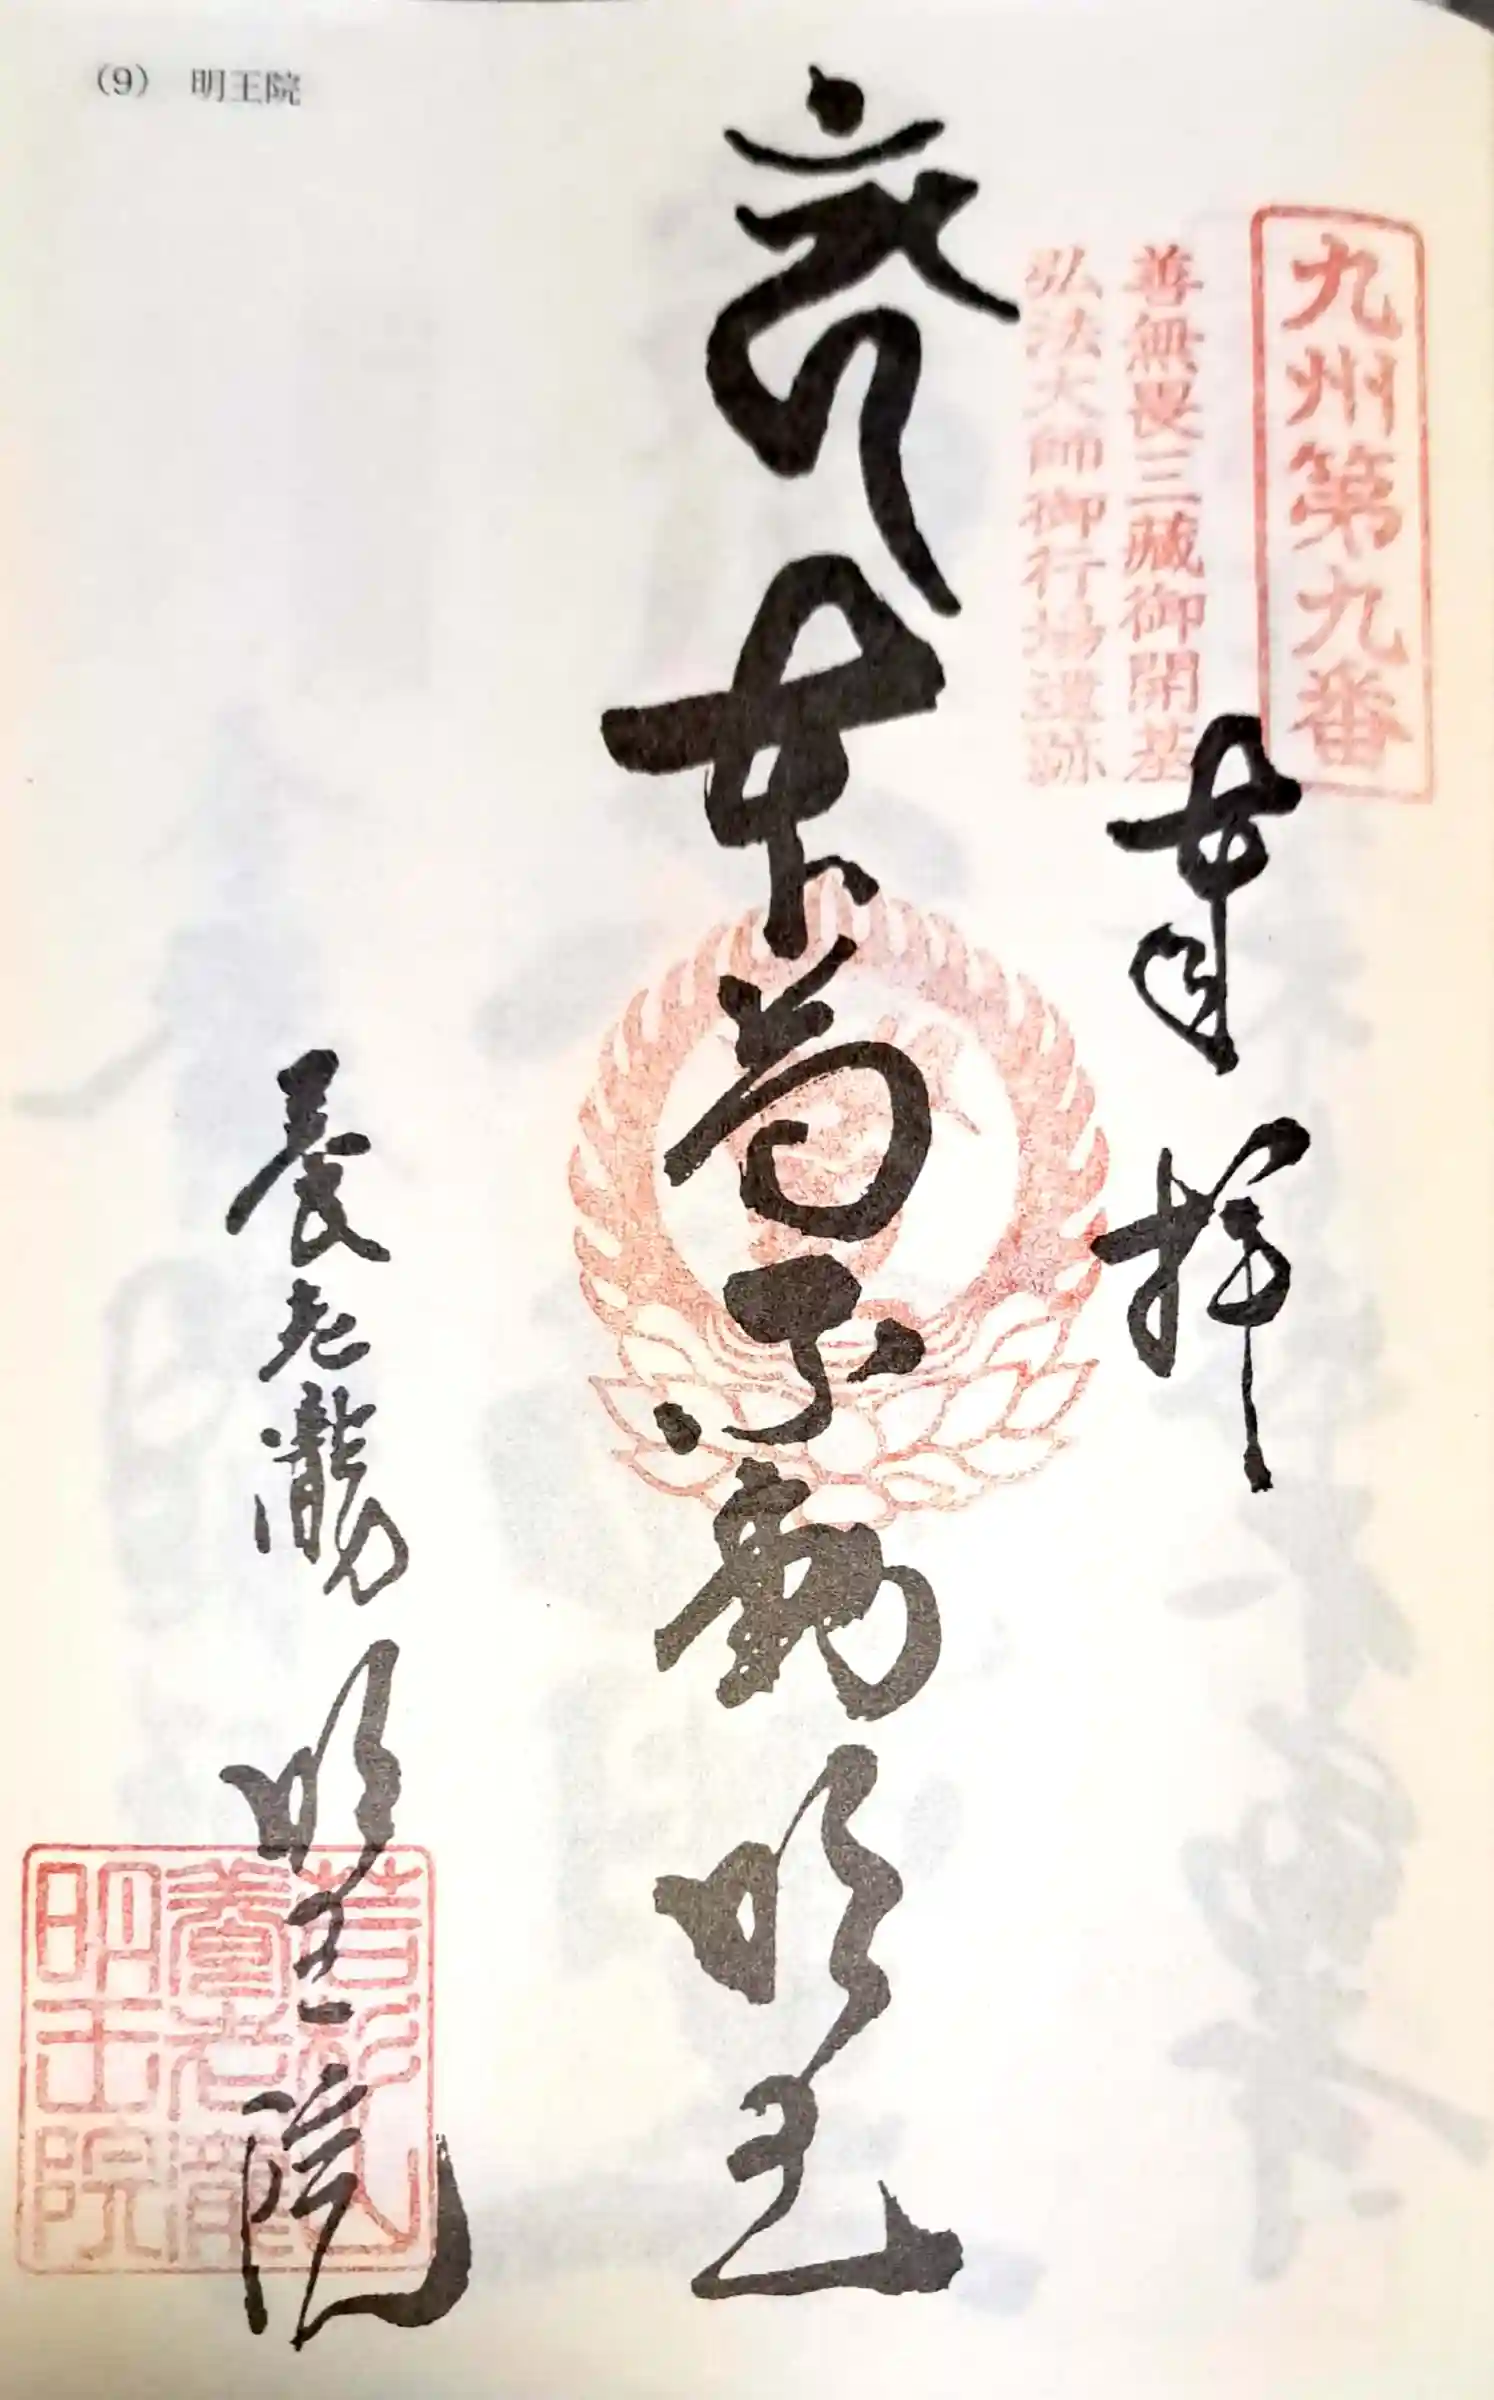 (9) 明王院
九州第九番
善無畏三藏御開基
弘法大師御行場遺跡
奉拝
本尊不動明王
養老瀧
明王院
若杉山
養老瀧
明王院